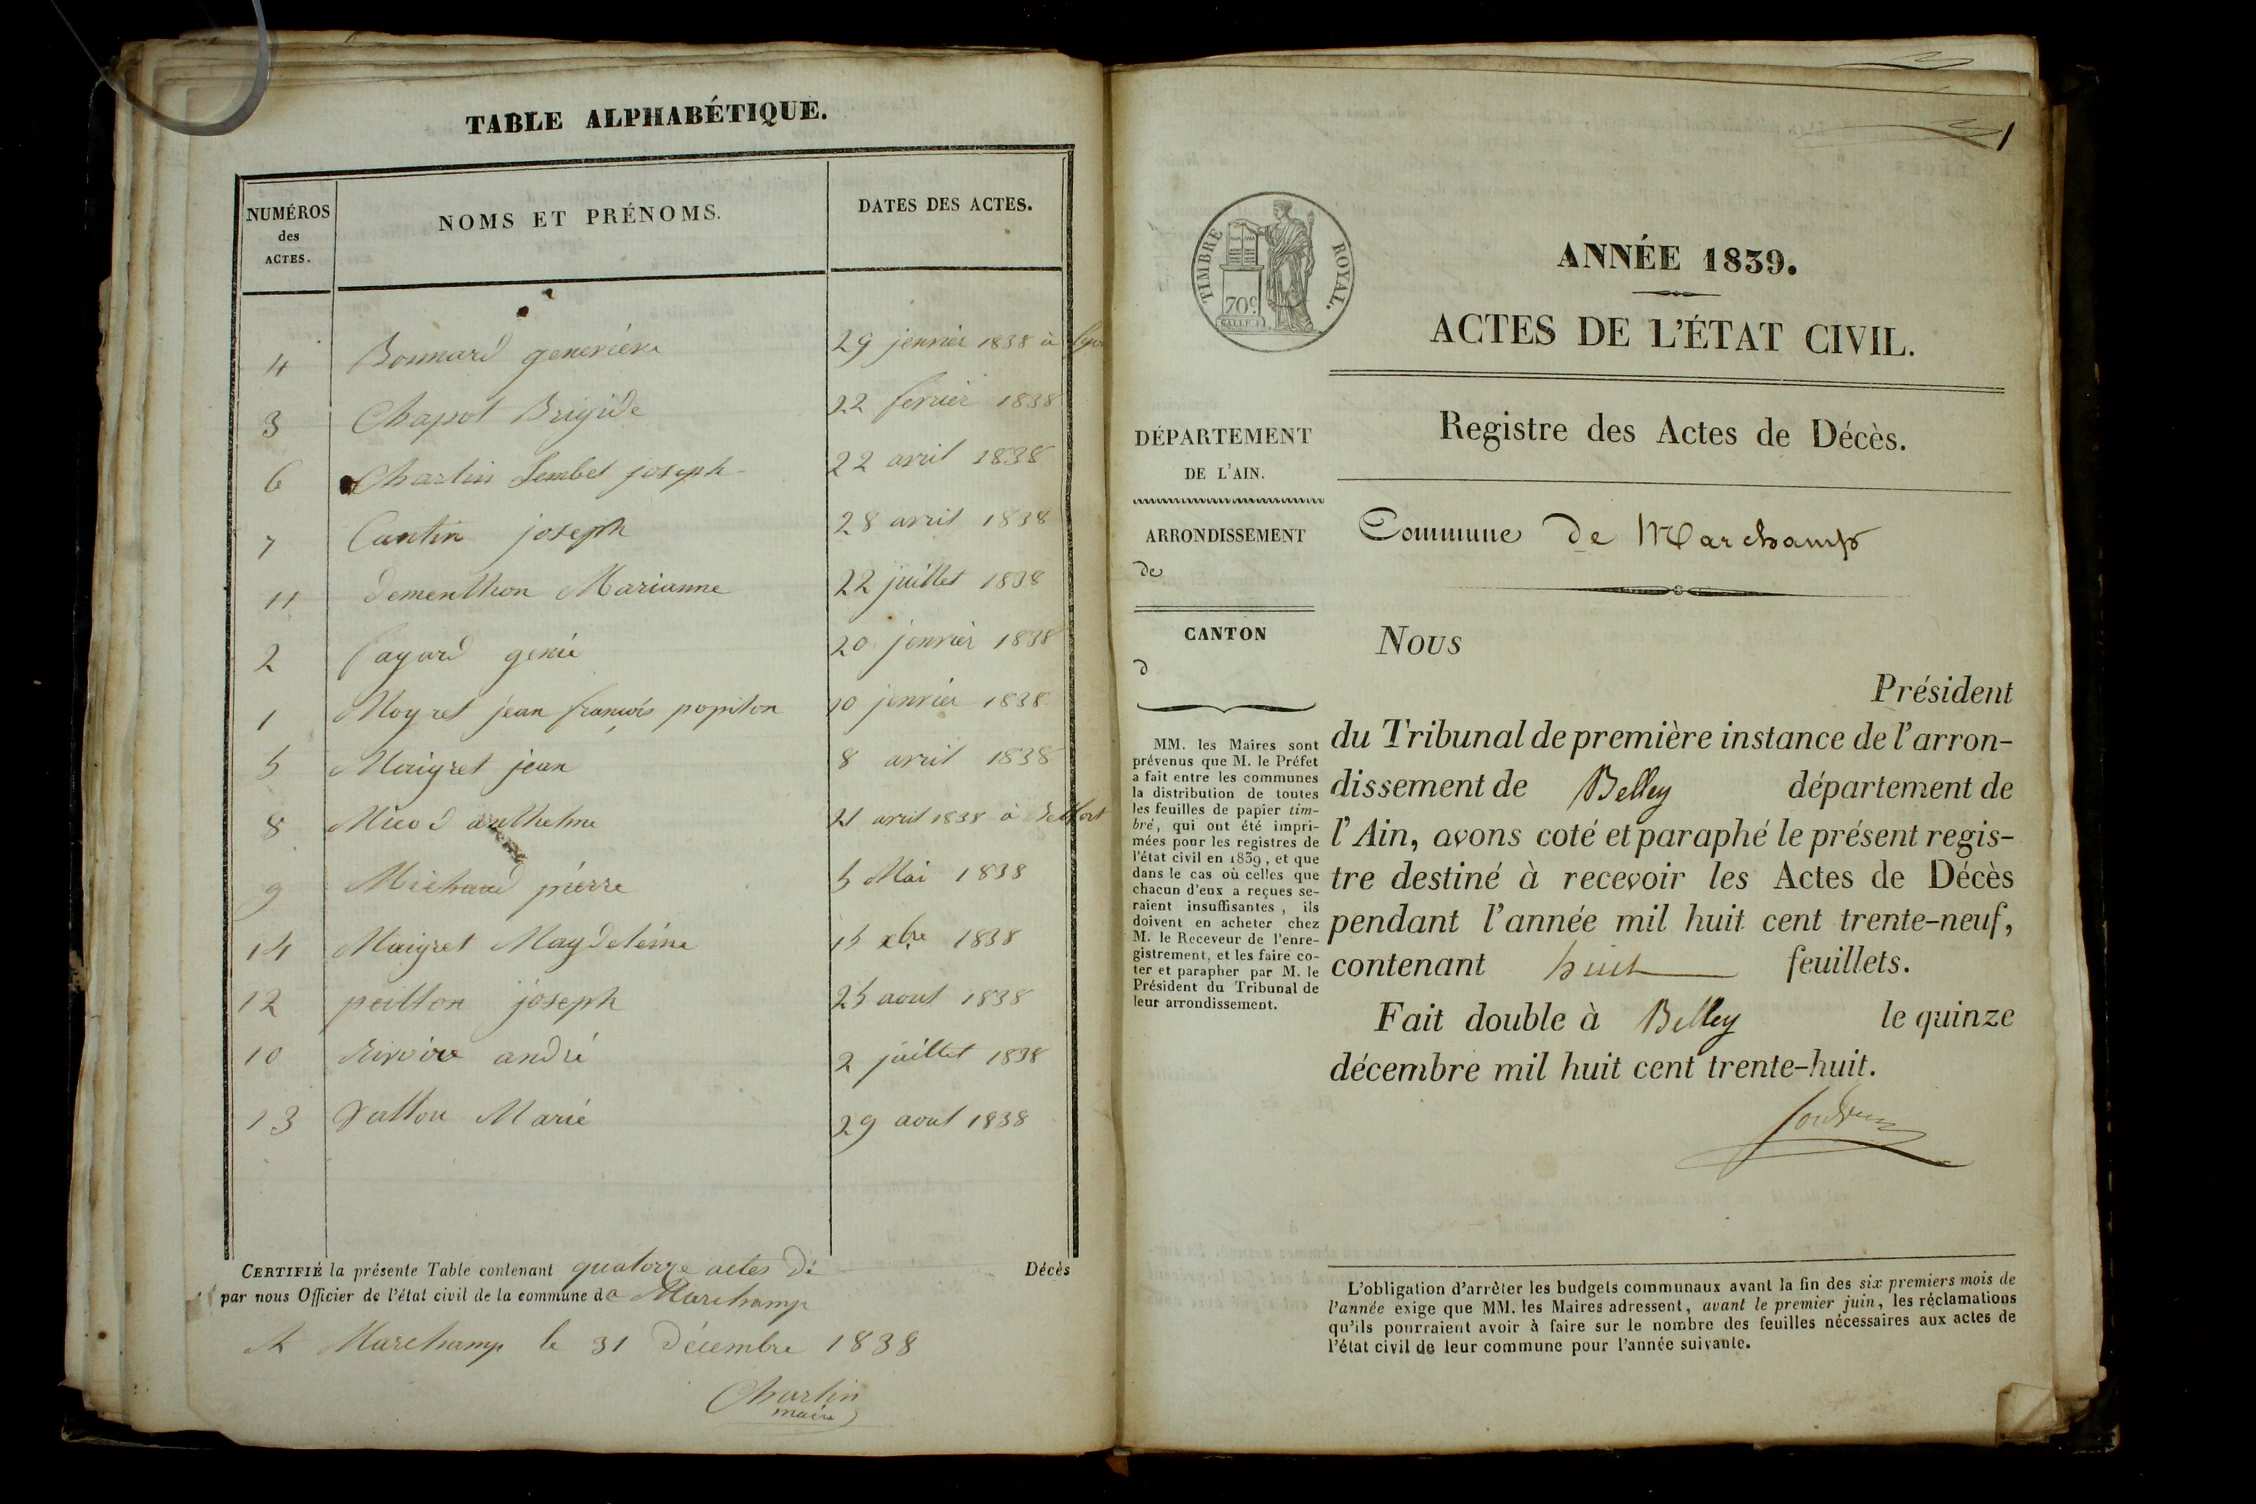 TABLE ALPHABÉTIQUE.
NUMÉROS des ACTES. NOMS ET PRÉNOMS. DATES DES ACTES.
4 Bonnard genevieve 29 jenvier 1838 à
3 Chapot Brigide 22 fevrier 1838
6 Charlin Lembet joseph 22 avril 1838
7 Cantin joseph 28 avril 1838
11 dementhon Marianne 22 juillet 1838
2 fayard genie 20 jenvier 1838
1 Moyret jean françois popiton 10 jenvier 1838
5 Maigret jean 8 avril 1838
8 Micod anthelme 21 avril 1838 à
9 Michaud pierre 5 Mai 1838
14 Maigret Magdeleine 15 xbre 1838
12 peilton joseph 25 aout 1838
10 Rivoire andré 2 juillet 1838
13 Vallou Marie 29 aout 1838
CERTIFIÉ la présente Table contenant quatorze actes de Décès
par nous Officier de l'état civil de la commune de Marchamp
A Marchamp le 31 décembre 1838
Charlin
maire
1
TIMBRE ROYAL.
70c.
ANNÉE 1839.
ACTES DE L'ÉTAT CIVIL.
Registre des Actes de Décès.
DÉPARTEMENT
DE L'AIN.
ARRONDISSEMENT
de
CANTON
d
MM. les Maires sont
prévenus que M. le Préfet
a fait entre les communes
la distribution de toutes
les feuilles de papier tim-
bré, qui ont été impri-
mées pour les registres de
l'état civil en 1839, et que
dans le cas où celles que
chacun d'eux a reçues se-
raient insuffisantes, ils
doivent en acheter chez
M. le Receveur de l'enre-
gistrement, et les faire co-
ter et parapher par M. le
Président du Tribunal de
leur arrondissement.
Commune de Marchamp
Nous
Président
du Tribunal de première instance de l'arron-
dissement de Belley département de
l'Ain, avons coté et paraphé le présent regis-
tre destiné à recevoir les Actes de Décès
pendant l'année mil huit cent trente-neuf,
contenant huit feuillets.
Fait double à Belley le quinze
décembre mil huit cent trente-huit.
L'obligation d'arrêter les budgets communaux avant la fin des six premiers mois de
l'année exige que MM. les Maires adressent, avant le premier juin, les réclamations
qu'ils pourraient avoir à faire sur le nombre des feuilles nécessaires aux actes de
l'état civil de leur commune pour l'année suivante.